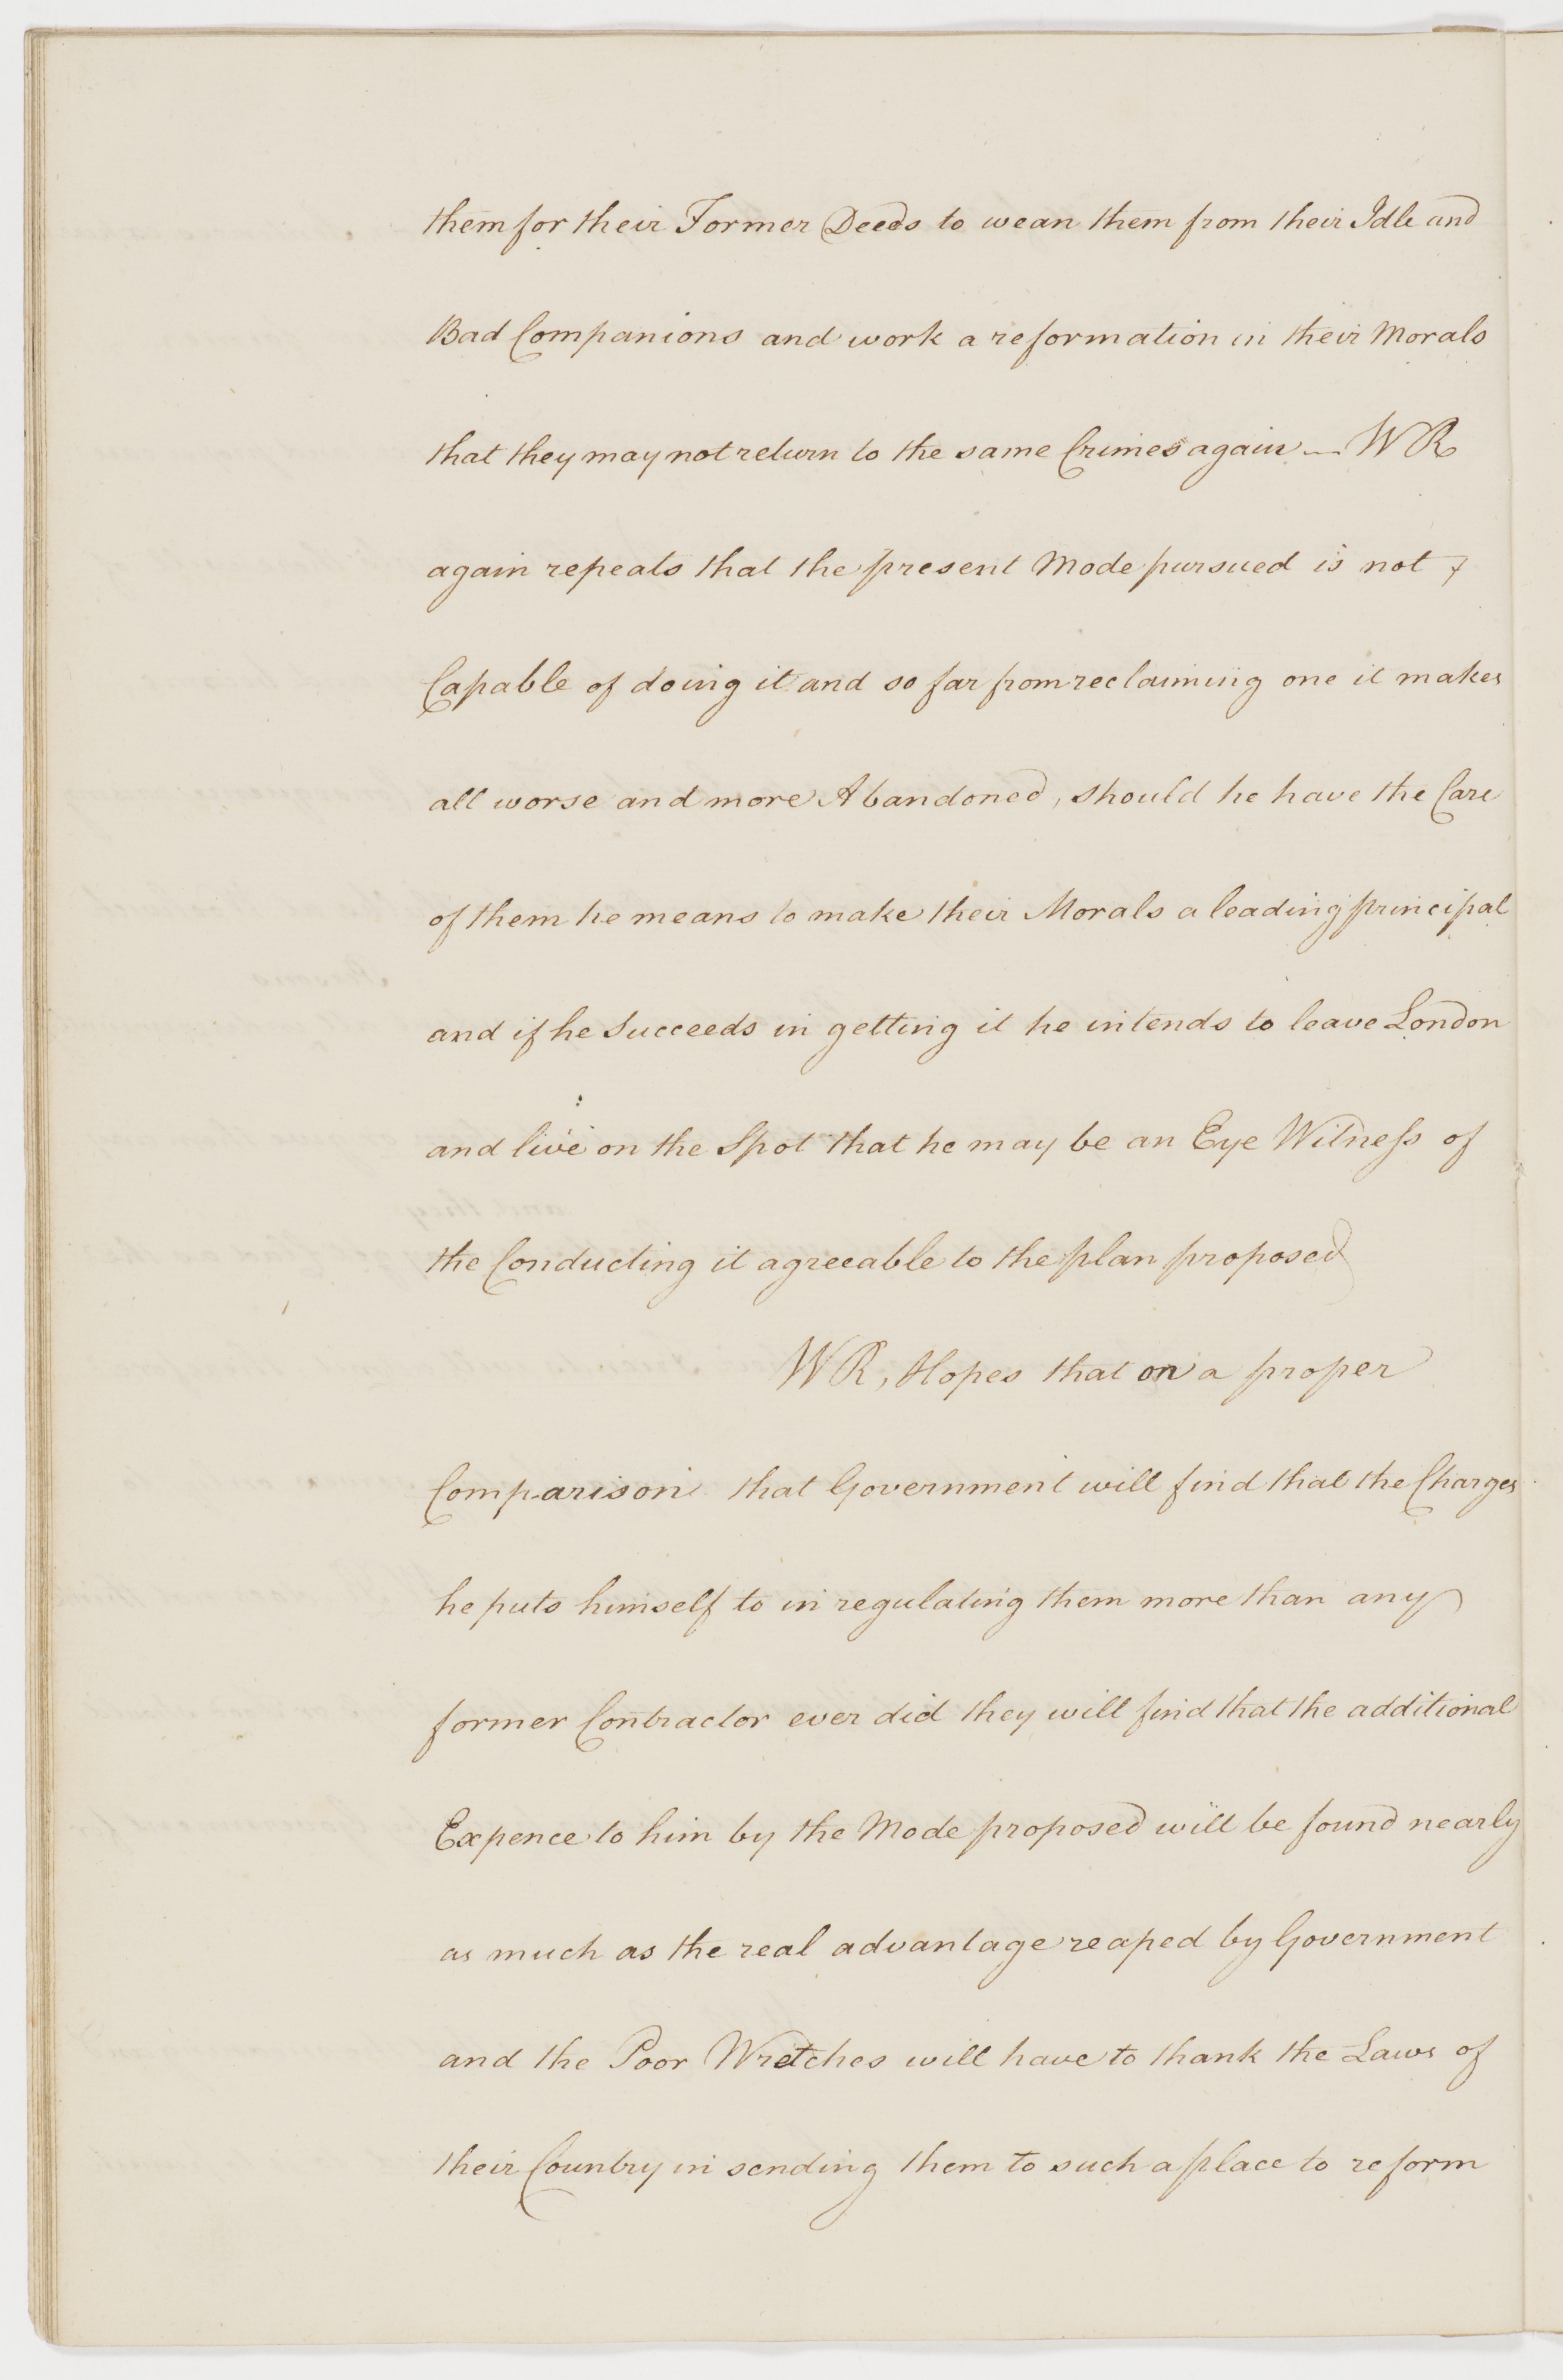 them for their Former Deeds to wean them from their Idle and
Bad Companions and work a reformation in their Morals
that they may not return to the same Crimes again — WR
again repeats that the present Mode pursued is not
Capable of doing it and so far from reclaiming one it makes
all worse and more Abandoned, should he have the Care
of them he means to make their Morals a leading principal
and if he Succeeds in getting it he intends to leave London
and live on the Spot that he may be an Eye Witness of
the Conducting it agreeable to the plan proposed
WR, Hopes that on a proper
Comparison that Government will find that the Charges
he puts himself to in regulating them more than any
former Contractor ever did they will find that the additional
Expence to him by the Mode proposed will be found nearly
as much as the real advantage reaped by Government
and the Poor Wretches will have to thank the Laws of
their Country in sending them to such a place to reform